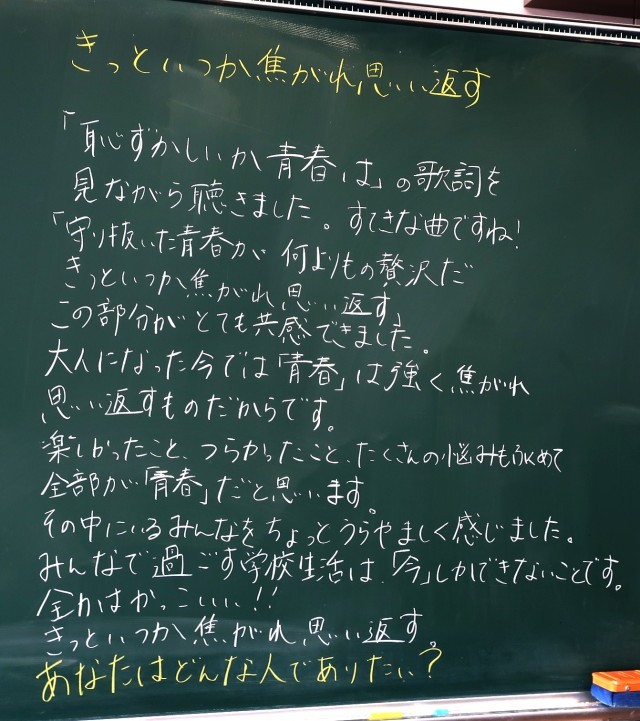 きっといつか焦がれ思い返す
「恥ずかしいか青春は」の歌詞を
見ながら聴きました。すてきな曲ですね!
「守り抜いた青春が何よりもの贅沢だ
きっといつか焦がれ思い返す」
この部分がとても共感できました。
大人になった今では「青春」は強く焦がれ
思い返すものだからです。
楽しかったこと、つらかったこと、たくさんの悩みもふくめて
全部が「青春」だと思います。
その中にいるみんなをちょっとうらやましく感じました。
みんなで過ごす学校生活は、「今」しかできないことです。
全力はかっこいい!!
きっといつか焦がれ思い返す。
あなたはどんな人でありたい?